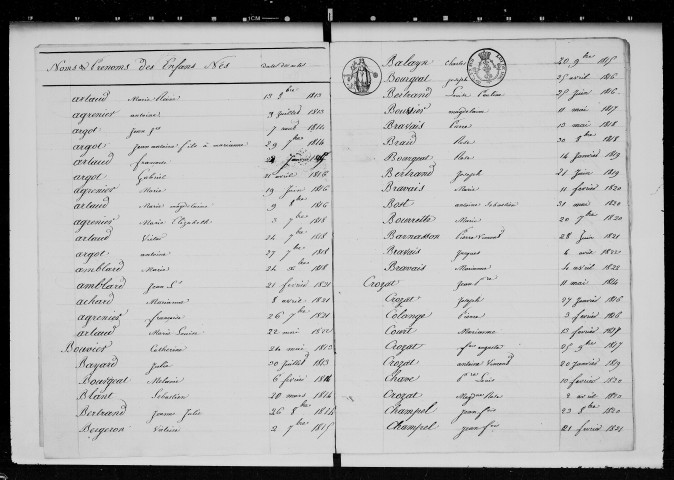 Noms & Prenoms des Enfans Nés Dates des actes
artaud Marie Claire 13 9bre 1813
agrenier antoine 3 juillet 1813
argot Jean fçs 7 mai 1814
argot Jean antoine fils à marianne 29 7bre 1814
artaud francoise janvier
argot Gabriel 21 avril 1816
agrenier Marie 19 Juin 1816
artaud Marie magdelaine 9 8bre 1816
agrenier Marie Elizabeth 3 7bre 1818
artaud Victor 24 7bre 1818
argot antoine 27 7bre 1818
amblard Marie 24 xbre 1818
amblard Jean Ls 21 fevrier 1821
achard Marianne 8 avril 1821
agrenier françoise 26 7bre 1821
artaud Marie Louise 22 mai 1822
Bouvier Catherine 24 mai 1813
Bayard Julie 30 Juillet 1813
Bourgeat Melanie 6 fevrier 1814
Blanc Sebastien 20 mars 1814
Bertrand Jeanne Julie 26 8bre 1814
Bergeron Victoire 2 7bre 1815
Balayn Charles 20 9bre 1815
Bourgeat joseph 25 avril 1816
Bertrand Louise 25 Juin 1816
Bouvier magdelaine 11 mai 1817
Bravais Pierre 13 mai 1818
Braud Rose 30 8bre 1818
Bourgeat Rose 14 Janvier 1819
Bertrand Joseph 21 Juin 1819
Bravais Marie 11 fevrier 1820
Bost antoine Sebastien 31 mai 1820
Bourrette Marie 20 7bre 1820
Barnasson Pierre Vincent 28 Juin 1821
Bravais Jacques 6 avril 1822
Bravais Marianne 4 avril 1822
Crozat Jean Pre 11 mai 1814
Crozat Joseph 27 Janvier 1816
Colange Pierre 3 fevrier 1816
Court Marianne 13 fevrier 1817
Crozat auguste 25 9bre 1817
Crozat antoine Vincent 20 Janvier 1819
Chave Pre Louis 10 fevrier 1820
Crozat Magdne Rose 2 avril 1820
Champel Jean fçois 23 8bre 1820
Champel Jean fçs 21 fevrier 1821